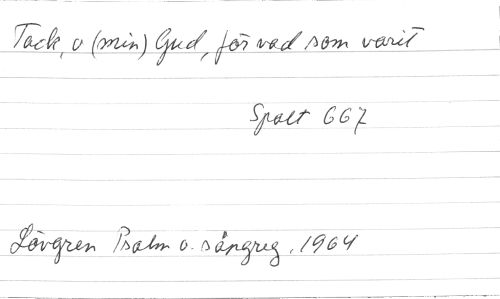 Tack, o (min) Gud, för vad som varit
Spalt 667
Lövgren Psalm o. sångreg. 1964